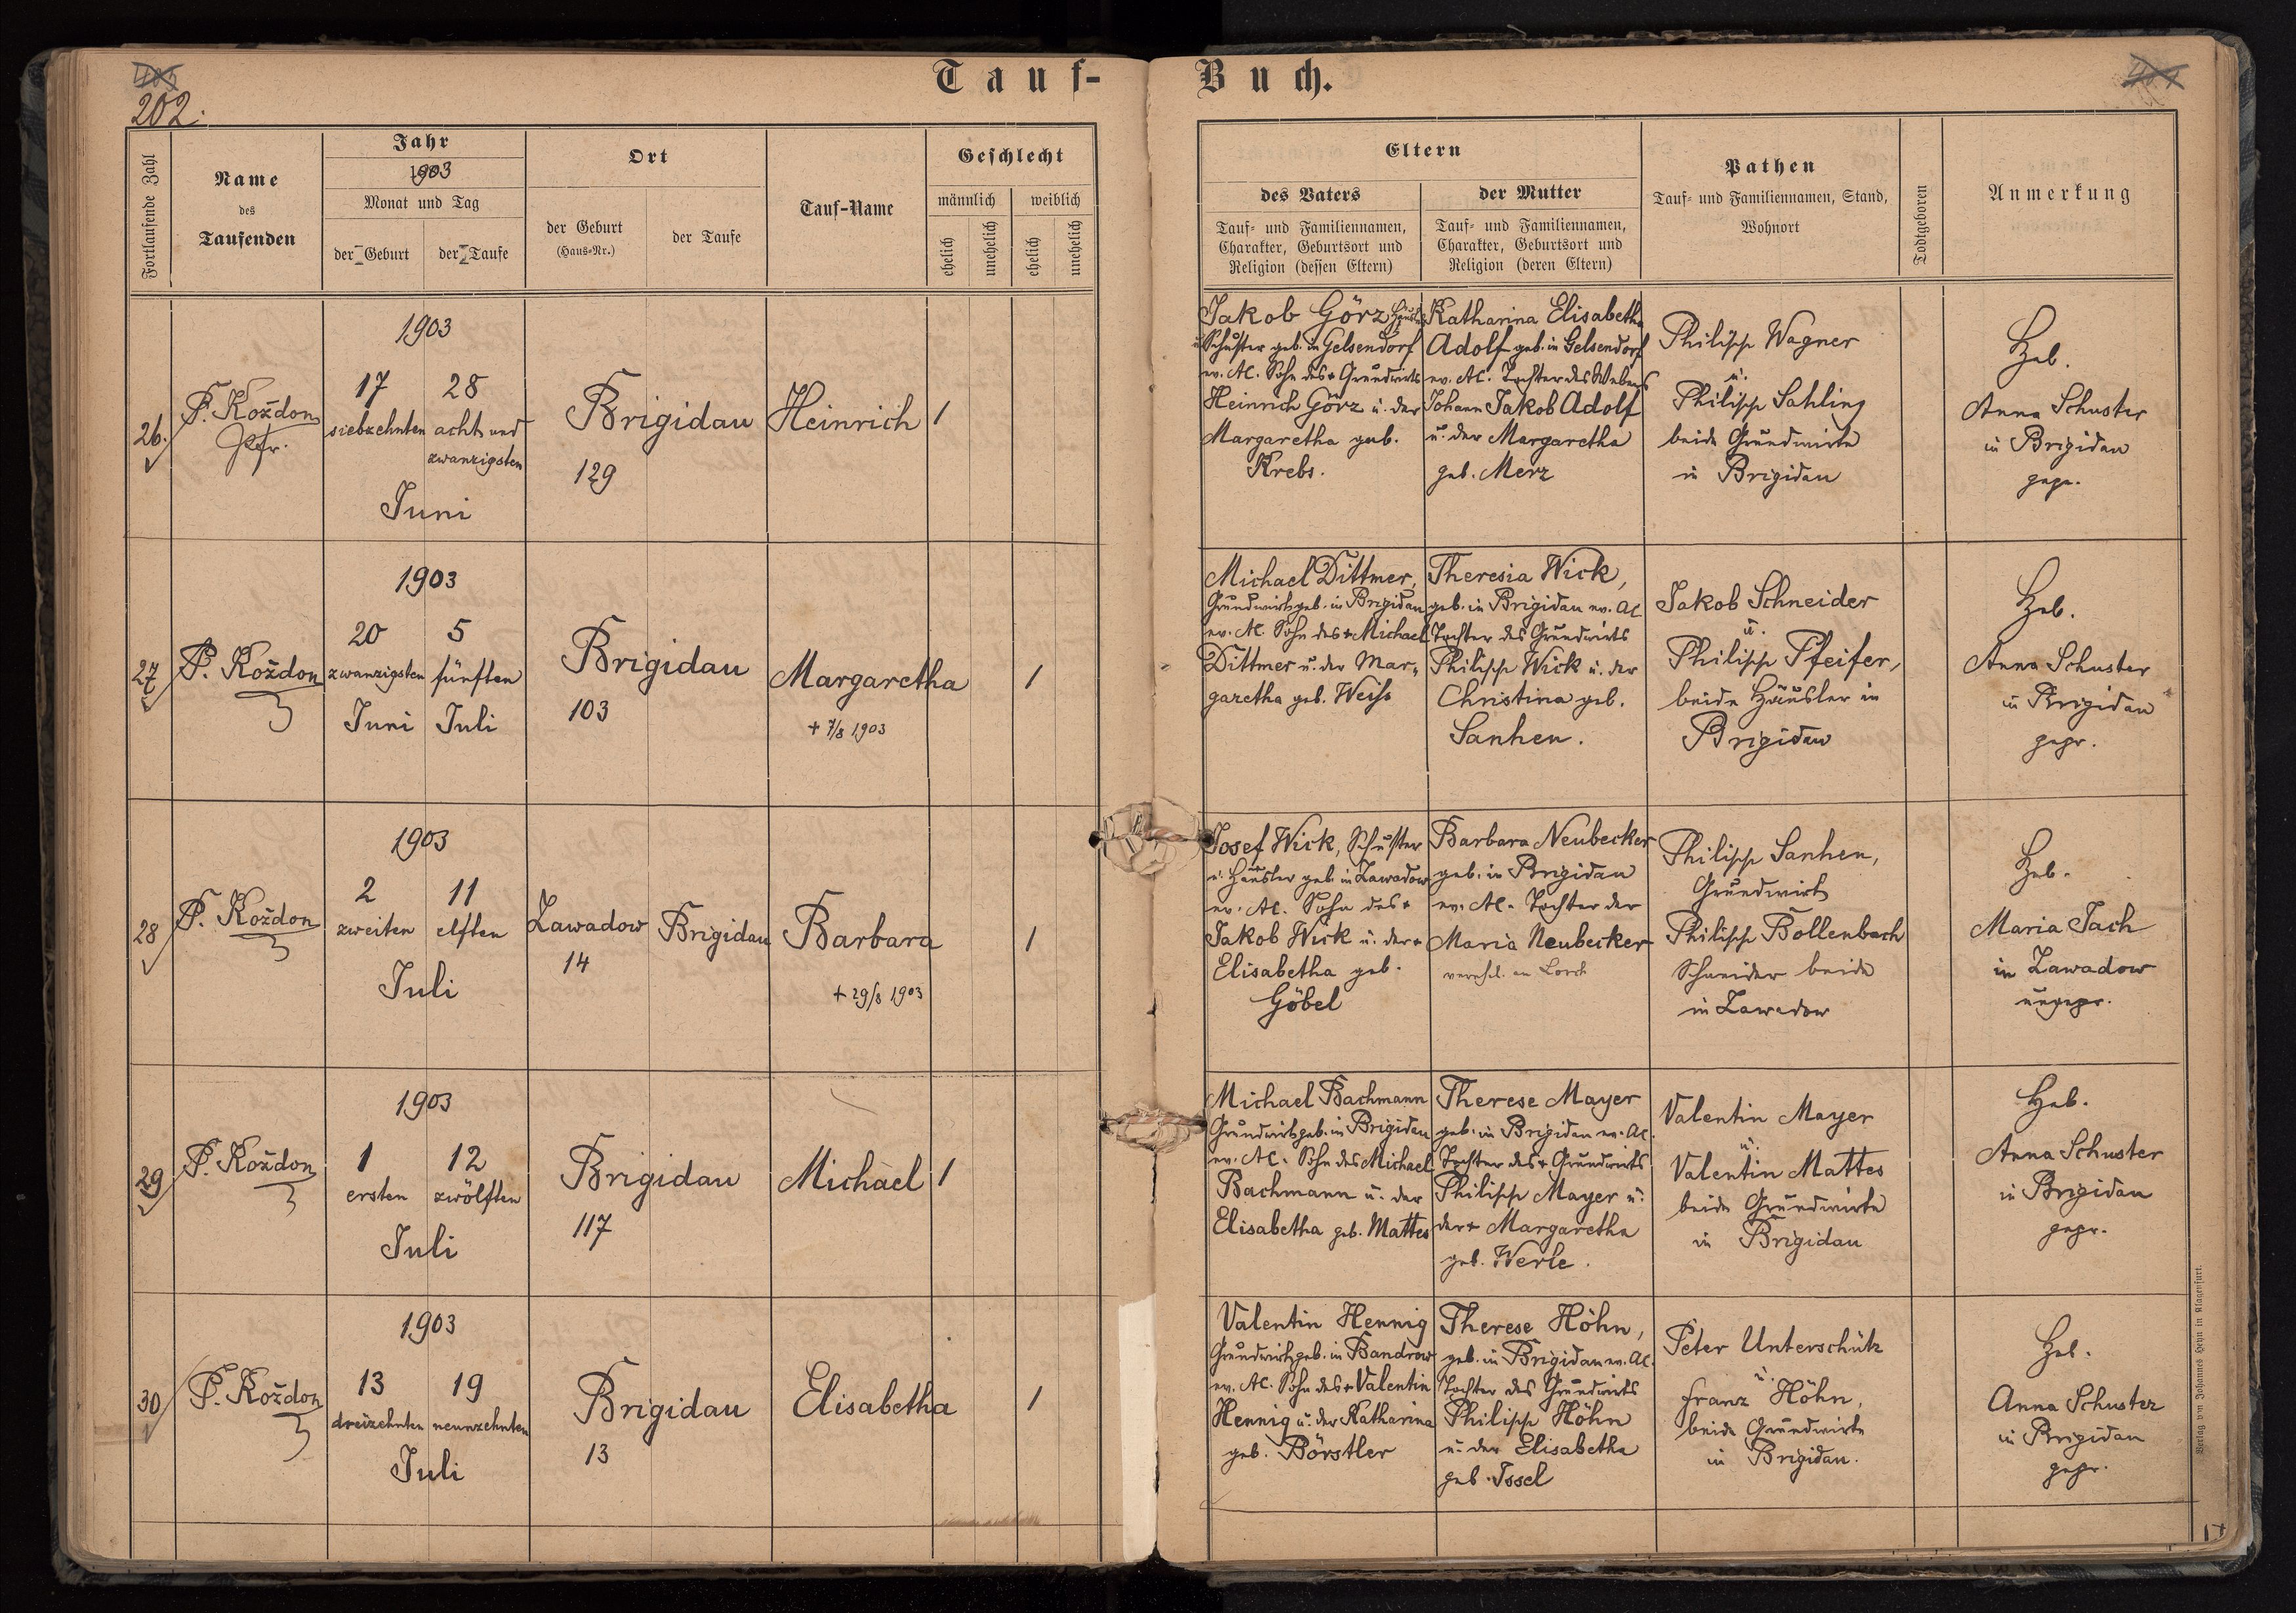 Tauf-
Buch.
202.
Fortlaufende Zahl
Name
des
Taufenden
Jahr
1903
Monat und Tag
der Geburt
der Taufe
Ort
der Geburt
(Haus-Nr.)
der Taufe
Tauf-Name
Geschlecht
männlich
weiblich
ehelich
unehelich
ehelich
unehelich
Eltern
des Vaters
Tauf- und Familiennamen,
Charakter, Geburtsort und
Religion (dessen Eltern)
der Mutter
Tauf- und Familiennamen,
Charakter, Geburtsort und
Religion (deren Eltern)
Pathen
Tauf- und Familiennamen, Stand,
Wohnort
Todtgeboren
Anmerkung
26.
P. Koždon
Pfr.
1903
17
siebzehnten
28
acht und
zwanzigsten
Juni
Brigidau
129
Heinrich
1
Jakob Görz Häusler
u. Schuster geb. in Gelsendorf
ev. AC. Sohn des + Grundwirts
Heinrich Görz u. der
Margaretha geb.
Krebs.
Katharina Elisabetha
Adolf geb. in Gelsendorf
ev. AC. Tochter des Webers
Johann Jakob Adolf
u. der Margaretha
geb. Merz
Philipp Wagner
u.
Philipp Sahling
beide Grundwirte
in Brigidau
Heb.
Anna Schuster
in Brigidau
gepr.
27
P. Koždon
1903
20
zwanzigsten
Juni
5
fünften
Juli
Brigidau
103
Margaretha
+ 7/8 1903
1
Michael Dittmer,
Grundwirt geb. in Brigidau
ev. AC. Sohn des + Michael
Dittmer u. der Mar-
garetha geb. Weiß
Theresia Wick,
geb. in Brigidau ev. AC
Tochter des Grundwirts
Philipp Wick u. der
Christina geb.
Sanhen.
Jakob Schneider
u.
Philipp Pfeifer,
beide Häusler in
Brigidau
Heb.
Anna Schuster
in Brigidau
gepr.
28
P. Koždon
1903
2
zweiten
11
elften
Juli
Zawadow
14
Brigidau
Barbara
+ 29/8 1903
1
Josef Wick, Schuster
u. Häusler geb. in Zawadow
ev. AC. Sohn des +
Jakob Wick u. der +
Elisabetha geb.
Göbel
Barbara Neubecker
geb. in Brigidau
ev. AC. Tochter der
Maria Neubecker
verehel. an Lorch
Philipp Sanhen,
Grundwirt
Philipp Bollenbach
Schneider beide
in Zawadow
Heb.
Maria Jach
in Zawadow
ungepr.
29
P. Koždon
1903
1
ersten
12
zwölften
Juli
Brigidau
117
Michael
1
Michael Bachmann
Grundwirt geb. in Brigidau
ev. AC. Sohn des Michael
Bachmann u. der
Elisabetha geb. Mattes
Therese Mayer
geb. in Brigidau ev. AC.
Tochter des + Grundwirts
Philipp Mayer u.
der + Margaretha
geb. Werle.
Valentin Mayer
u.
Valentin Mattes
beide Grundwirte
in Brigidau
Heb.
Anna Schuster
in Brigidau
gepr.
30
P. Koždon
1903
13
dreizehnten
19
neunzehnten
Juli
Brigidau
13
Elisabetha
1
Valentin Hennig
Grundwirt geb. in Bandrow
ev. AC. Sohn des + Valentin
Hennig u. der Katharina
geb. Börstler
Therese Höhn,
geb. in Brigidau ev. AC.
Tochter des Grundwirts
Philipp Höhn
u. der Elisabetha
geb. Issel
Peter Unterschütz
u.
Franz Höhn,
beide Grundwirte
in Brigidau.
Heb.
Anna Schuster
in Brigidau
gepr.
Verlag von Johannes Heyn in Klagenfurt.
17